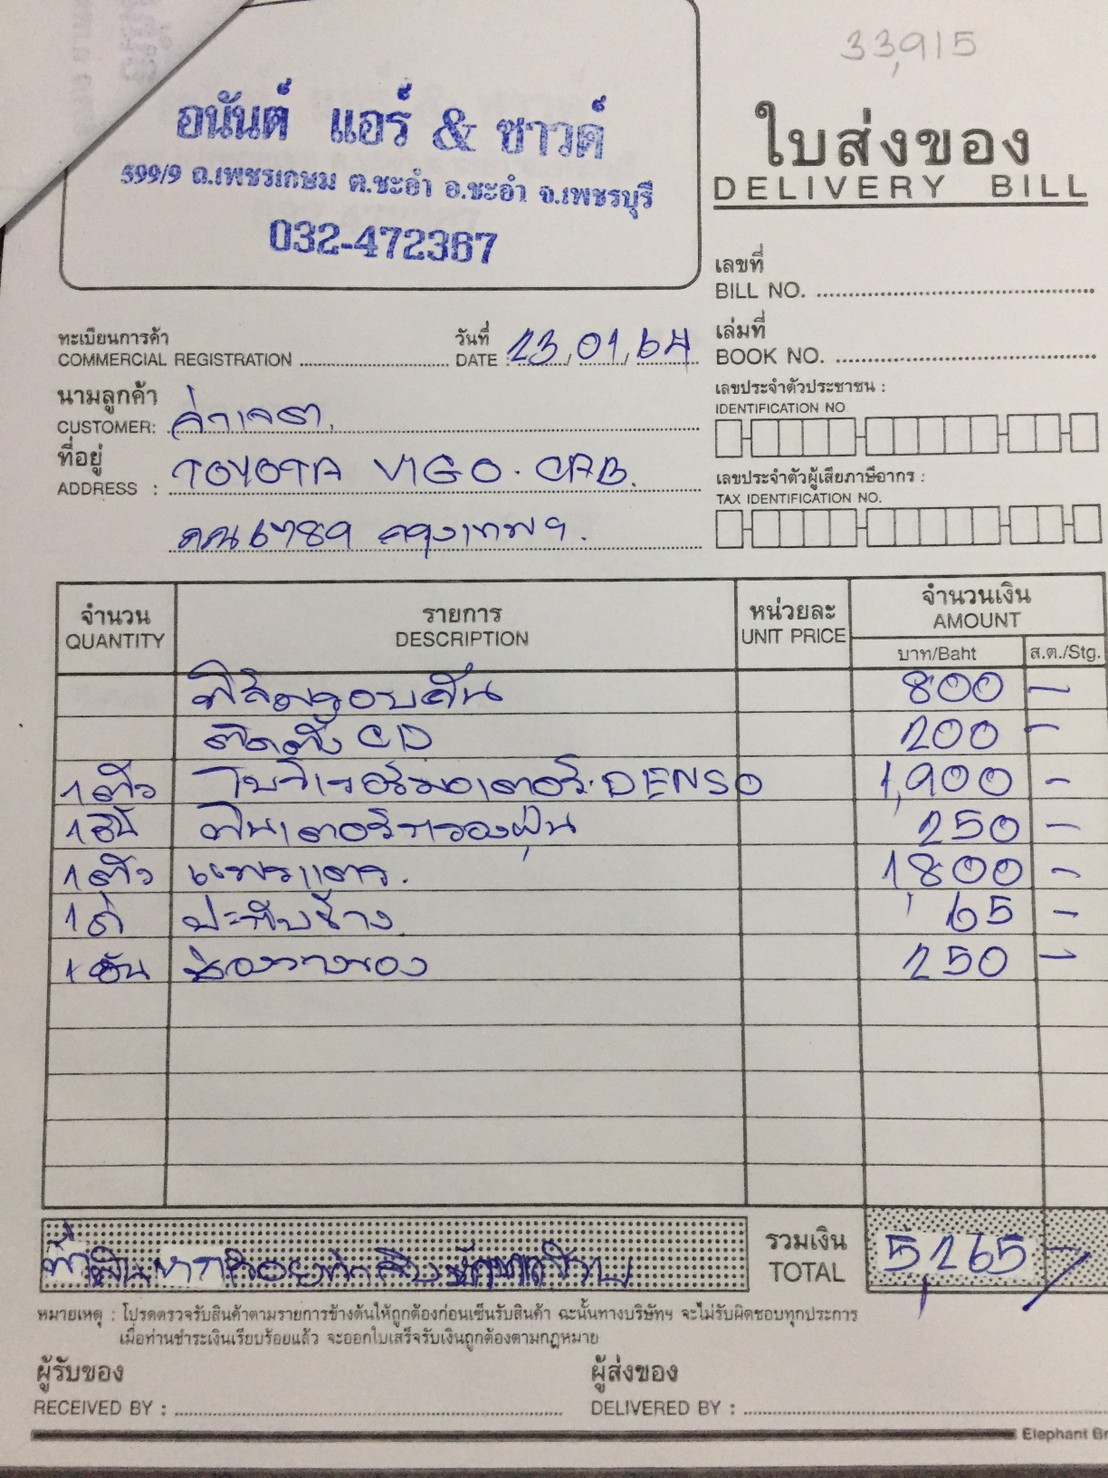 33,915
อนันต์ แอร์ & ซาวด์
599/9 ถ.เพชรเกษม ต.ชะอำ อ.ชะอำ จ.เพชรบุรี
032-472367
ใบส่งของ
DELIVERY BILL
เลขที่
BILL NO.
ทะเบียนการค้า
COMMERCIAL REGISTRATION
วันที่
DATE 23/01/64
เล่มที่
BOOK NO.
นามลูกค้า
CUSTOMER:
เลขประจำตัวประชาชน :
IDENTIFICATION NO
ที่อยู่
ADDRESS : TOYOTA VIGO. CAB.
เลขประจำตัวผู้เสียภาษีอากร :
TAX IDENTIFICATION NO.
6789 กรุงเทพฯ.
จำนวน
QUANTITY
รายการ
DESCRIPTION
หน่วยละ
UNIT PRICE
จำนวนเงิน
AMOUNT
บาท/Baht ส.ต./Stg.
ฟิล์มรอบคัน 800 -
ติดตั้ง CD 200 -
1 ตัว โบเวอร์มอเตอร์. DENSO 1,900 -
1 อัน ฟิลเตอร์กรองฝุ่น 250 -
1 ตัว 1,800 -
65 -
1 อัน ช่องวางของ 250 -
รวมเงิน
TOTAL 5,265 -
หมายเหตุ : โปรดตรวจรับสินค้าตามรายการข้างต้นให้ถูกต้องก่อนเซ็นรับสินค้า ฉะนั้นทางบริษัทฯ จะไม่รับผิดชอบทุกประการ
เมื่อท่านชำระเงินเรียบร้อยแล้ว จะออกใบเสร็จรับเงินถูกต้องตามกฎหมาย
ผู้รับของ
RECEIVED BY :
ผู้ส่งของ
DELIVERED BY :
Elephant Br